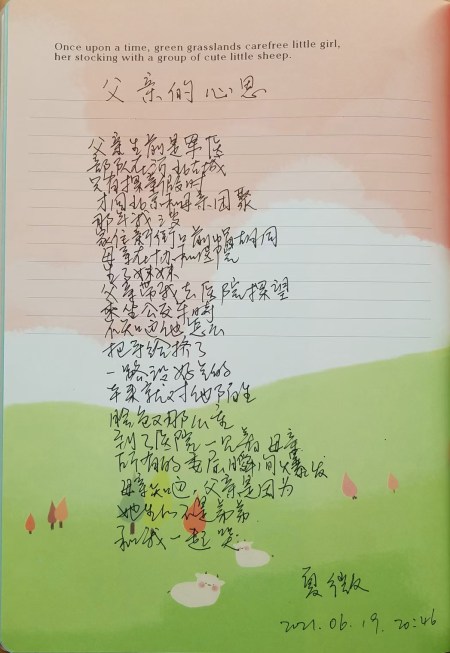 Once upon a time, green grasslands carefree little girl,
her stocking with a group of cute little sheep.
父亲的心思
父亲生前是军医
部队在河北
只有探亲假时
才回北京和母亲团聚
那年我三岁
家住新街口前帽胡同
母亲在协和医院
生了妹妹
父亲带我去医院探望
乘坐公交车时
不知
把牙给挤了
一路没好气的
本来就对他陌生
脸色又那么
到了医院一见着母亲
所有的委屈瞬间爆发
母亲知道，父亲是因为
她生的不是弟弟
和我一起哭…
夏微
2021.06.19. 20:46